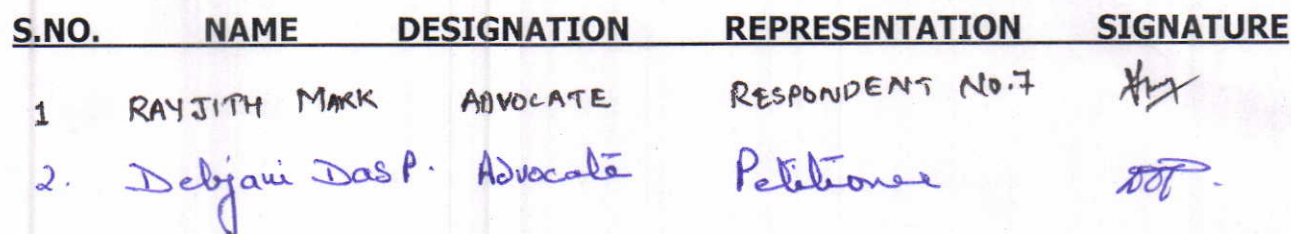 S.NO. NAME DESIGNATION REPRESENTATION SIGNATURE
1 RAYJITH MARK ADVOCATE RESPONDENT NO.7
2. Debjani Das P. Advocate Petitioner